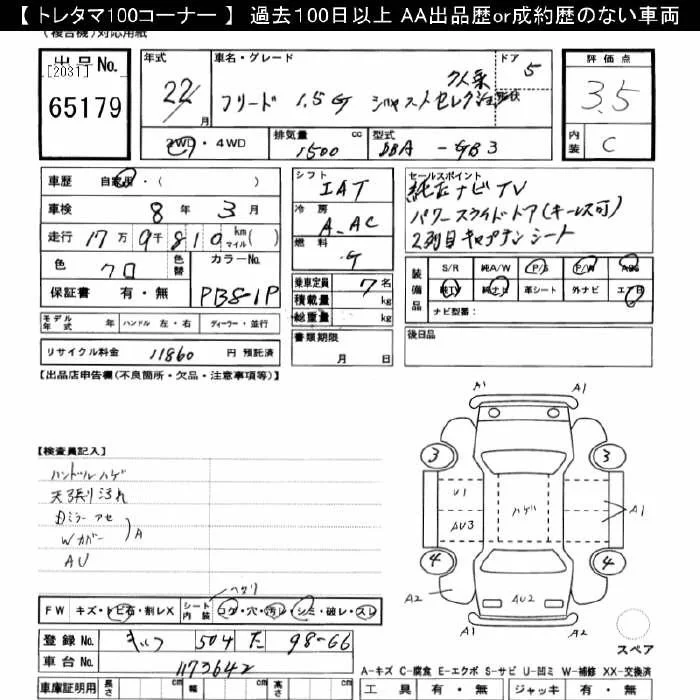 【 トレタマ100コーナー 】 過去100日以上 AA出品歴or成約歴のない車両
(複合機)対応用紙
出品No.
[2031]
65179
年式
22/
月
車名・グレード
フリード 1.5G ジャストセレクション
ドア
5
形状
評価点
3.5
内装
C
2WD・4WD
排気量 cc
1500
型式
DBA - GB3
車歴 自家用・( )
車検 8 年 3 月
走行 17万 9千 810 km マイル( )
色
クロ
色替
カラーNo.
PB81P
保証書 有・無
シフト
IAT
冷房
A.AC
燃料
G
乗車定員 7 名
積載量 kg
総重量 kg
セールスポイント
純正ナビTV
パワースライドドア(キーレス可)
2列目キャプテンシート
装備品
S/R 純A/W P/S P/W ABS
純TV 純ナビ 革シート 外ナビ エアB
ナビ型番:
モデル年式 年 ハンドル 左・右 ディーラー・並行
リサイクル料金 11860 円 預託済
書類期限
月 日
後日品
【出品店申告欄(不良箇所・欠品・注意事項等)】
【検査員記入】
ハンドルハゲ
天張り汚れ
Dミラー アセ
Wカバー
A
AU
A1
A1
3
3
U1
AU3
ハゲ
A1
4
4
A2
AU2
A2
スペア
FW キズ・トビ石・割レX
シート内装 コゲ・穴・汚レ・シミ・破レ・スレ
ヘタリ
登録No. 504 た 98-66
車台No. 1173642
車庫証明用 長さ cm 幅 cm 高さ cm
A-キズ C-腐食 E-エクボ S-サビ U-凹ミ W-補修 XX-交換済
工具 有・無 ジャッキ 有・無